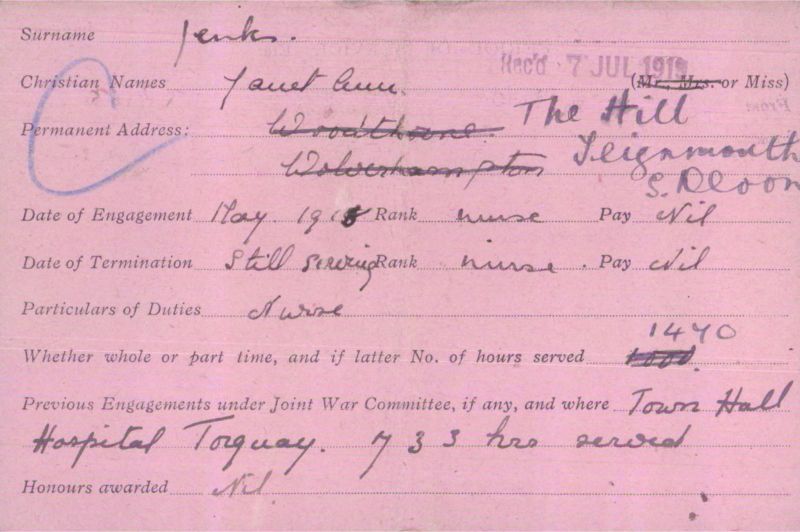 Surname Jenks.
Rec'd 7 JUL 1919
Christian Names Janet Ann. (Mr. Mrs. or Miss)
Permanent Address: Woodthorne. The Hill
Wolverhampton Teignmouth
S. Devon
Date of Engagement May 1915 Rank nurse Pay Nil
Date of Termination Still serving Rank nurse. Pay Nil
Particulars of Duties Nurse
1470
Whether whole or part time, and if latter No. of hours served 1000.
Previous Engagements under Joint War Committee, if any, and where Town Hall
Hospital Torquay. 733 hrs served
Honours awarded Nil